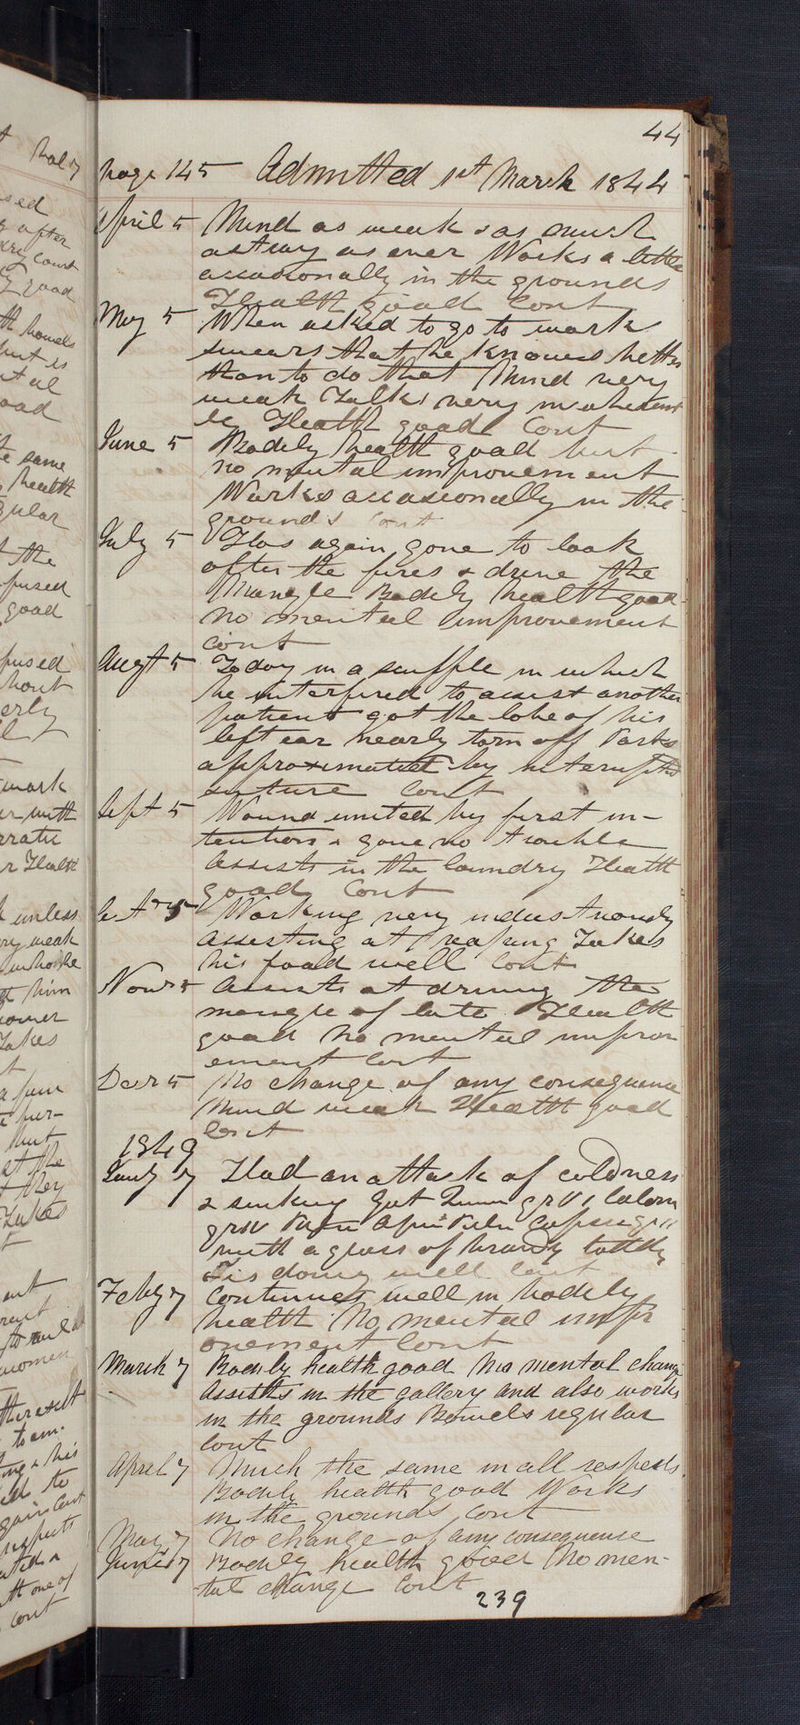 44
page 145 Admitted 1st March 1844
April 5 Mind as weak & as much
astray as ever Works a little
occasionally in the grounds
Health good Cont
May 5 When asked to go to work
swears that he knows better
than to do that Mind very
weak Talks very incoherent
ly Health good Cont
June 5 Bodily health good but
no mental improvement
Works occasionally in the
grounds Cont
July 5 Has again gone to look
after the fires & drive the
Mangle Bodily health good
no mental improvement
Cont
Augt 5 Today in a scuffle in which
he interfered to assist another
patient got the lobe of his
left ear nearly torn off Parts
approximated by interrupted
suture Cont
Sept 5 Wound united by first in-
tention & gave no trouble
Assists in the laundry Health
good Cont
Octr 5 Working very industriously
assisting at reaping Takes
his food well Cont
Novr 5 Assists at driving the
mangle of late Health
good No mental improv
ement Cont
Decr 5 No change of any consequence
Mind weak Health good
Cont
1849
Jany 7 Had an attack of coldness
& sinking Got
with a glass of brandy toddy
& is doing well Cont
Feby 7 Continues well in bodily
health No mental impr
ovement Cont
March 7 Bodily health good No mental change
Assists in the gallery and also works
in the grounds Bowels regular
Cont
April 7 Much the same in all respects
Bodily health good Works
in the grounds Cont
May 7 No change of any consequence
June 7 Bodily health good No men-
tal change Cont
239